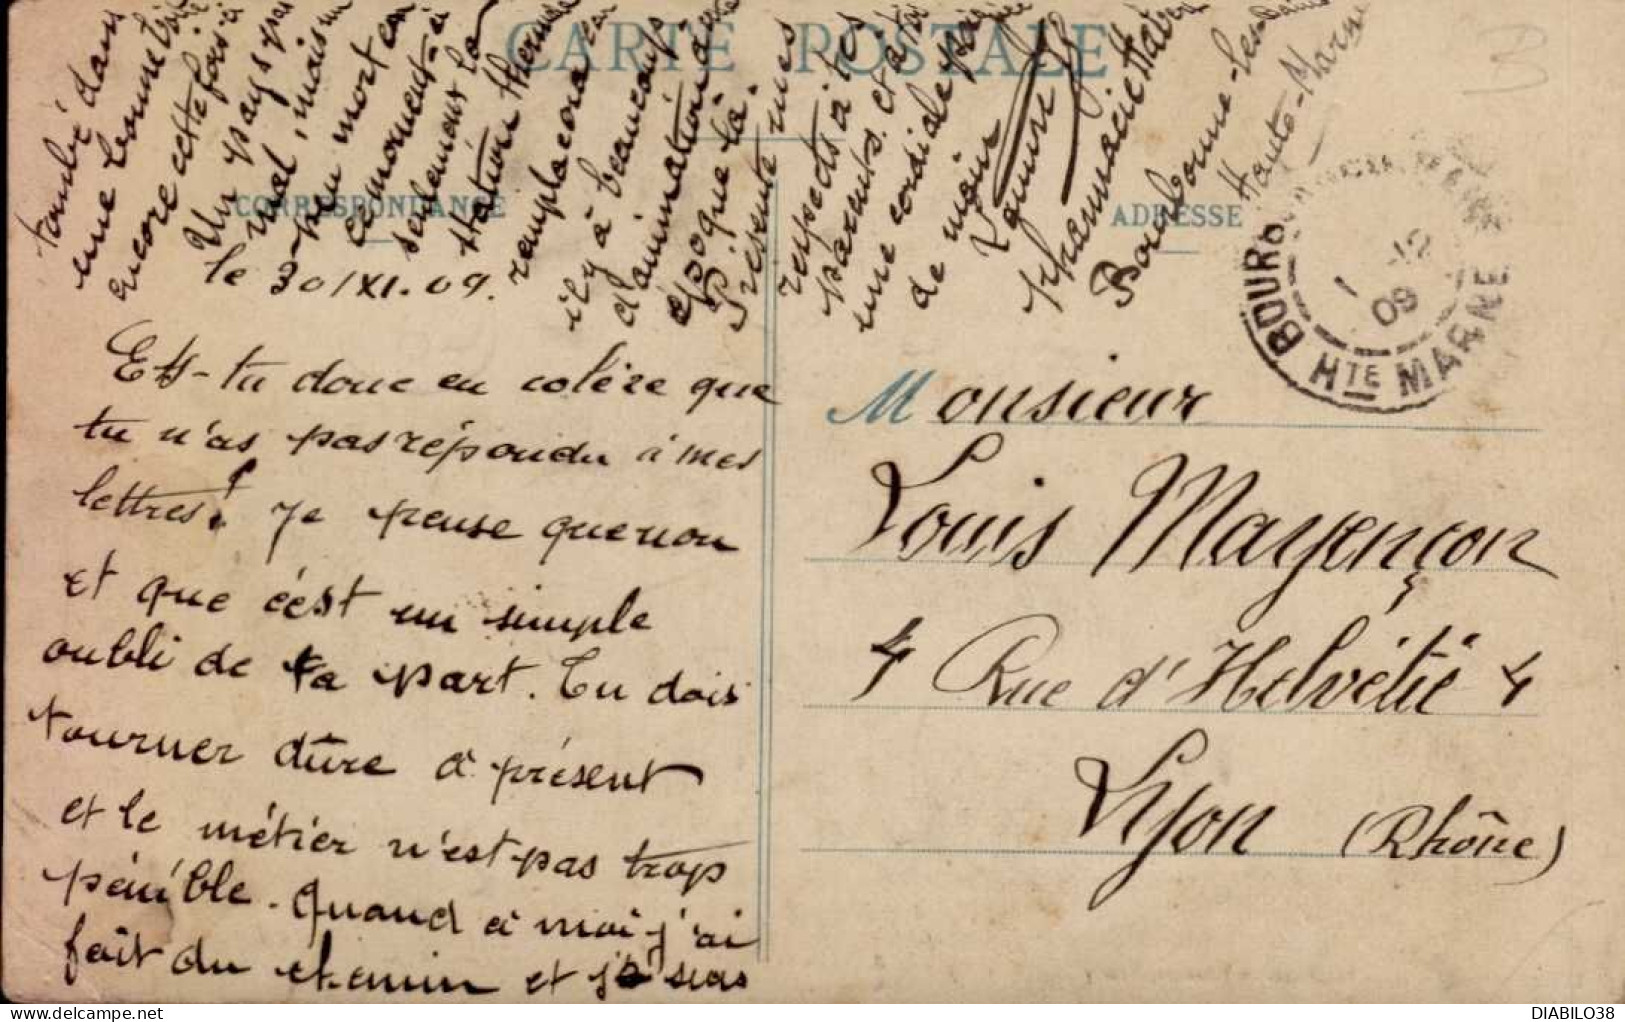 CARTE POSTALE
CORRESPONDANCE
le 30/XI.09.
Es-tu donc en colère que
tu n'as pas répondu à mes
lettres? Je pense que non
et que c'est un simple
oubli de ta part. Tu dois
tourner dûre à présent
et le métier n'est pas trop
pénible. Quand à moi j'ai
fait du chemin et je suis
tombé dans
une bonne
encore cette fois-ci
Un pays pas
mal, mais un
peu mort en
ce moment-ci
seulement la
station thermale
remplacera
il y a beaucoup
d'animation
époque là.
Présente mes
respects à tes
parents. et à toi
une cordiale poignée
de main
Pharmacie
Bourbonne-les-bains
Haute-Marne
ADRESSE
BOURB
HTE MARNE
1 -12
09
Monsieur
Louis Mayençon
4 Rue d'Helvétie 4
Lyon (Rhône)
3
DIABILO38